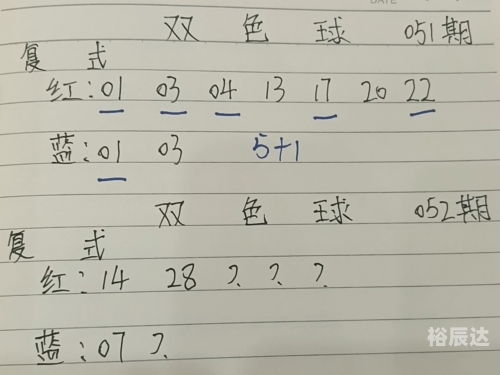 DATE
双 色 球 051期
复 式
红:01 03 04 13 17 20 22
蓝:01 03 5+1
双 色 球 052期
复 式
红:14 28 ? ? ?
蓝:07 ?
裕辰达